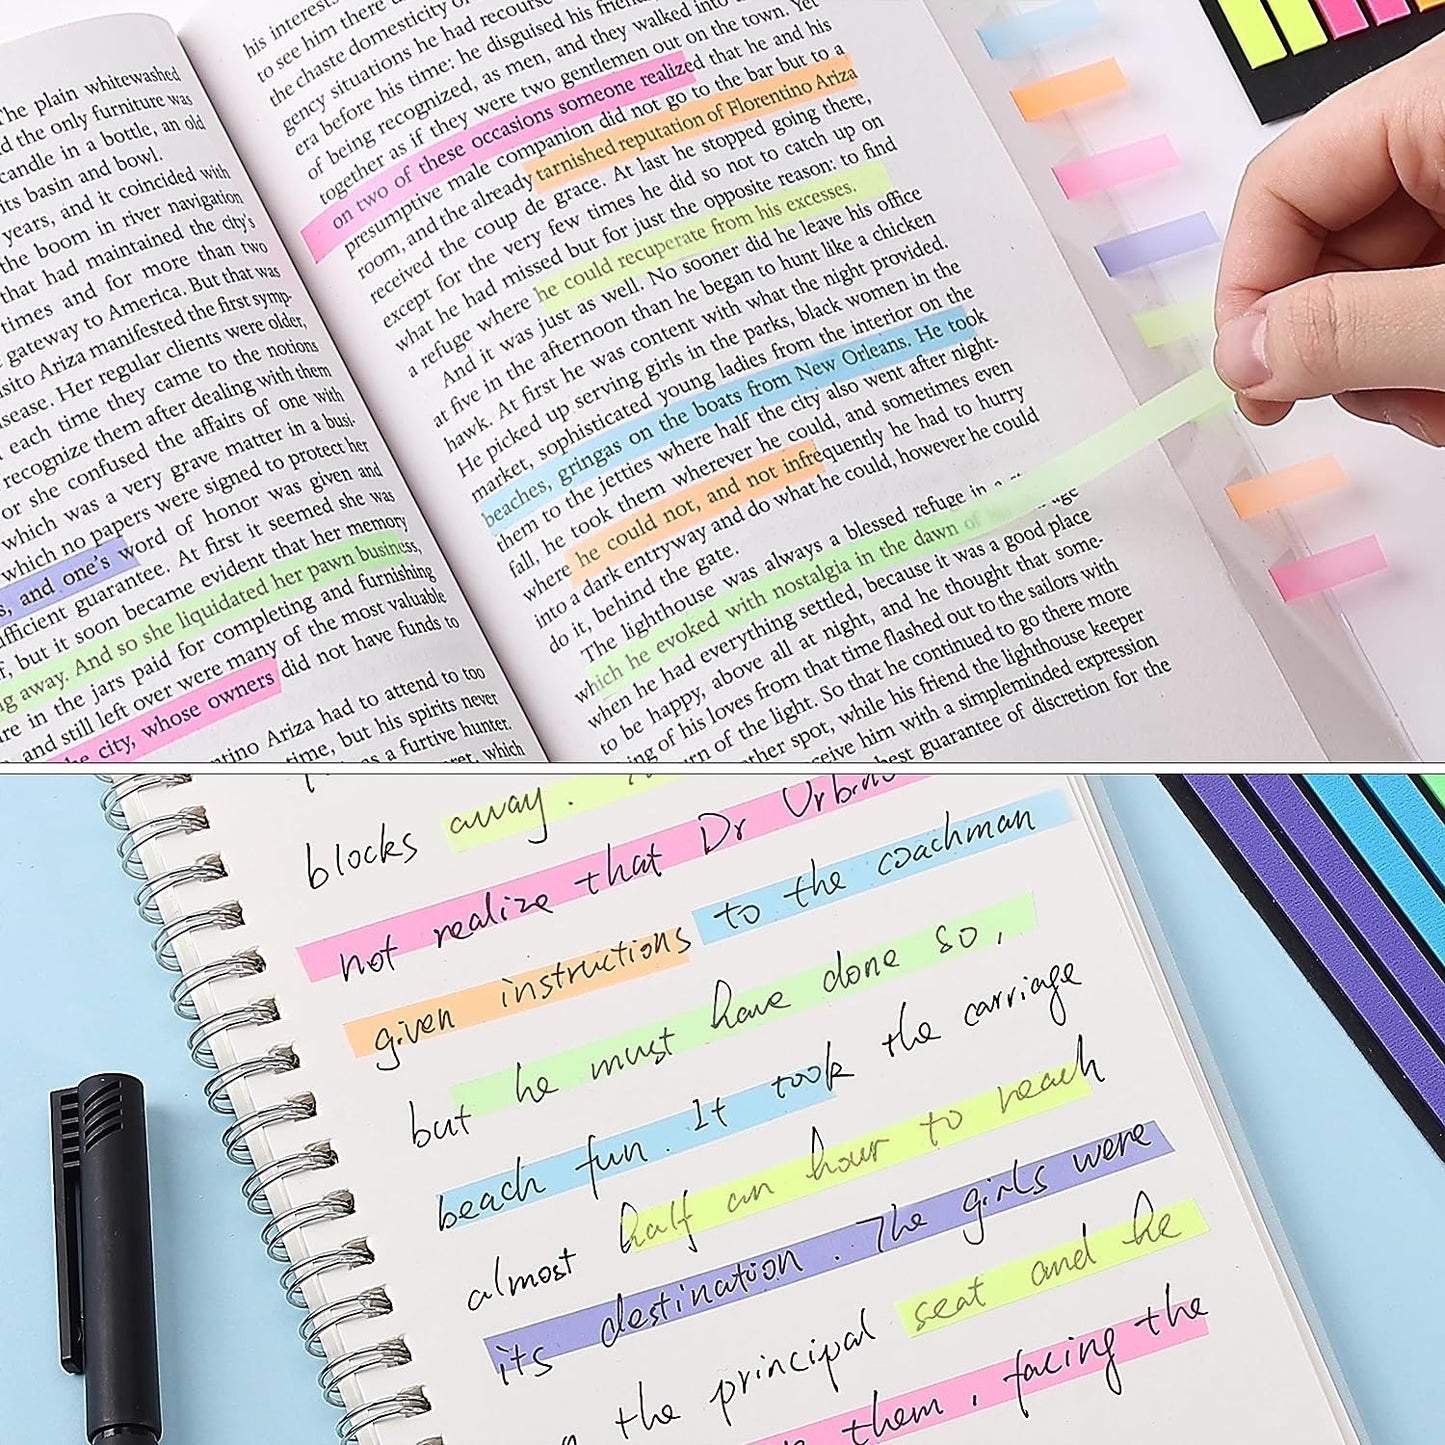 The plain whitewashed
d the only furniture was
candle in a bottle, an old
its basin and bowl.
years, and it coincided with
the boom in river navigation
that had maintained the city's
times and for more than two
gateway to America. But that was
sito Ariza manifested the first symp-
sease. Her regular clients were older,
each time they came to the notions
recognize them after dealing with them
or she confused the affairs of one with
which was a very grave matter in a busi-
which no papers were signed to protect her
s, and one's word of honor was given and
fficient guarantee. At first it seemed she was
f, but it soon became evident that her memory
ng away. And so she liquidated her pawn business,
re in the jars paid for completing and furnishing
and still left over were many of the most valuable
he city, whose owners did not have funds to
ntino Ariza had to attend to too
time, but his spirits never
as a furtive hunter.
ret, which
his interests
to see him there
the chaste domesticity of
gency situations he had recourse
era before his time: he disguised his friend,
of being recognized, as men, and they walked into
together as if they were two gentlemen out on the town. Yet
on two of these occasions someone realized that he and his
presumptive male companion did not go to the bar but to a
room, and the already tarnished reputation of Florentino Ariza
received the coup de grace. At last he stopped going there,
except for the very few times he did so not to catch up on
what he had missed but for just the opposite reason: to find
a refuge where he could recuperate from his excesses.
And it was just as well. No sooner did he leave his office
at five in the afternoon than he began to hunt like a chicken
hawk. At first he was content with what the night provided.
He picked up serving girls in the parks, black women in the
market, sophisticated young ladies from the interior on the
beaches, gringas on the boats from New Orleans. He took
them to the jetties where half the city also went after night-
fall, he took them wherever he could, and sometimes even
where he could not, and not infrequently he had to hurry
into a dark entryway and do what he could, however he could
do it, behind the gate.
The lighthouse was always a blessed refuge in a
which he evoked with nostalgia in the dawn of
when he had everything settled, because it was a good place
to be happy, above all at night, and he thought that some-
ing of his loves from that time flashed out to the sailors with
urn of the light. So that he continued to go there more
other spot, while his friend the lighthouse keeper
ceive him with a simpleminded expression
best guarantee of discretion for the
blocks away.
not realize that Dr Urbino
given instructions to the coachman
but he must have done so,
beach fun. It took the carriage
almost half an hour to reach
its destination. The girls were
the principal seat and he
them, facing the